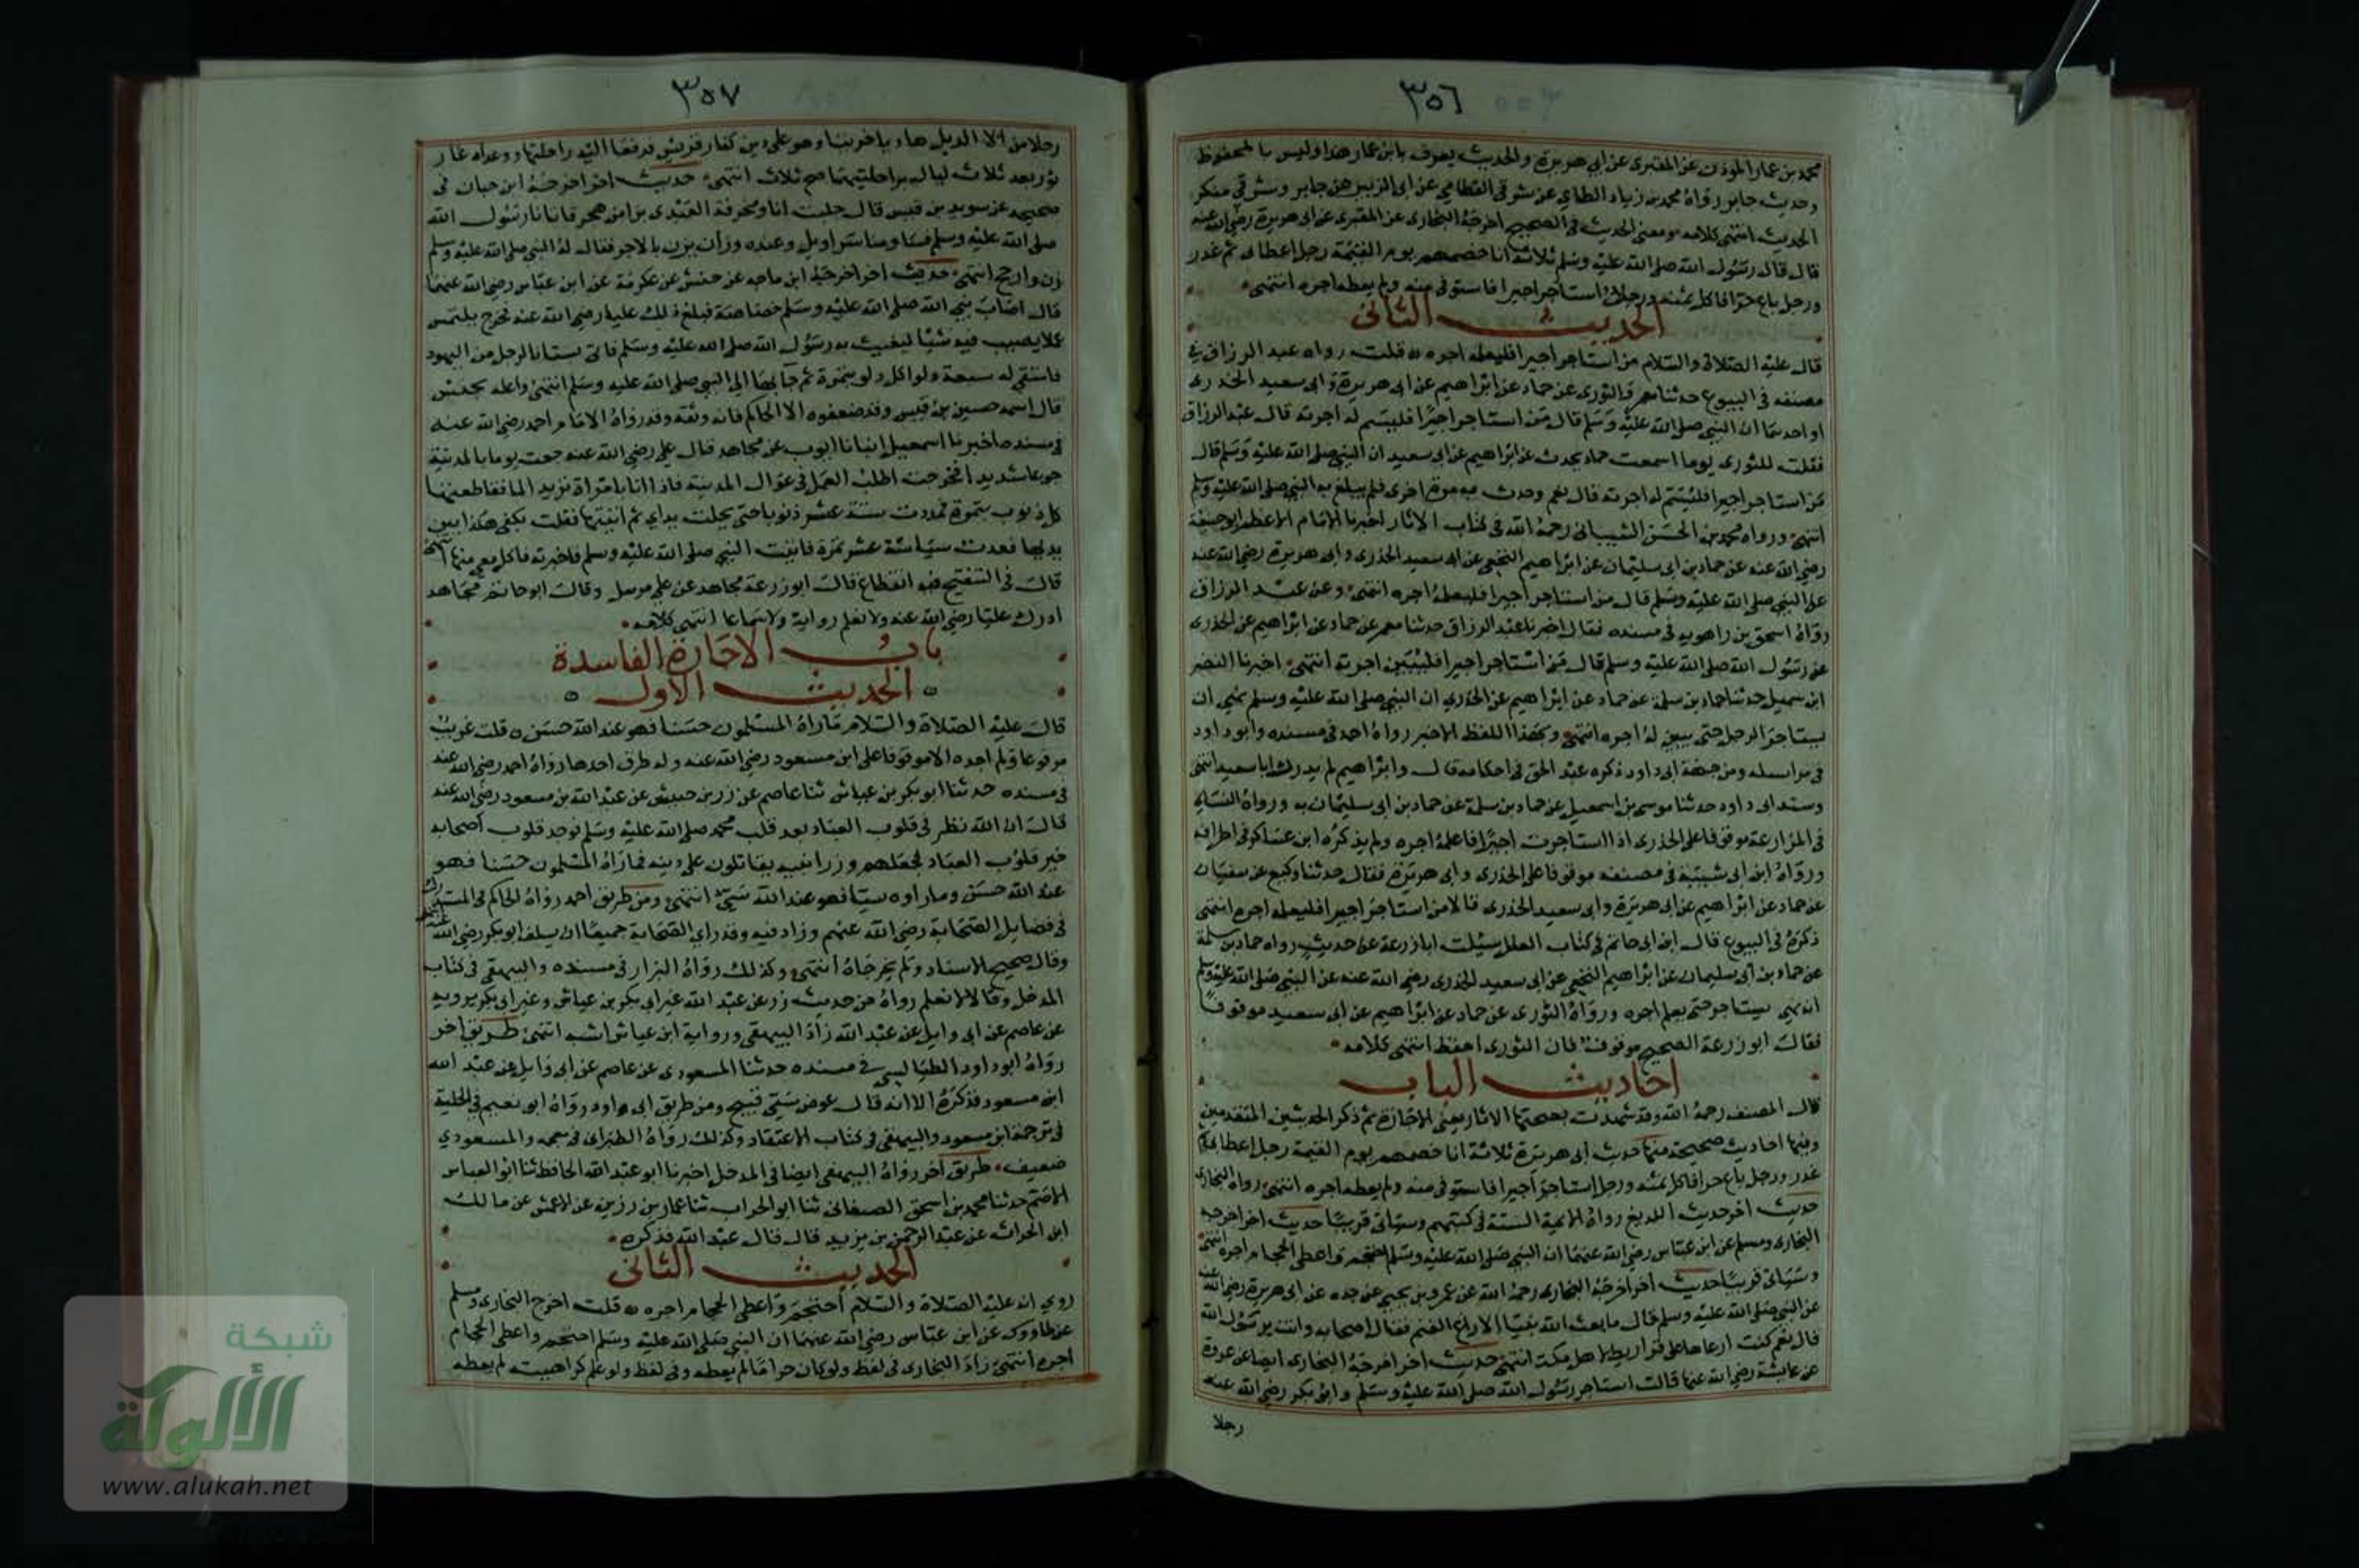 ٣٥٦
محمد بن عمار الموذن عن المقبرى عن ابى هريرة والحديث يعرف بابن عمار هذا وليس بالمحفوظ
وحديث جابر رواه محمد بن زياد الطاي عن شرقى القطامي عن ابى الزبير عن جابر وشرقي منكر
الحديث انتهى كلامه ومعنى الحديث فى الصحيح اخرجه البخارى عن المقبرى عن ابى هريرة رضى الله عنه
قال قال رسول الله صلى الله عليه وسلم ثلاثة انا خصمهم يوم القيمة رجل اعطا بى ثم غدر
ورجل باع حرا فاكل ثمنه ورجل استاجر اجيرا فاستوفى منه ولم يعطه اجره انتهى
الحديث الثانى
قال عليه الصلاة والسلام من استاجر اجيرا فليعلمه اجره قلت رواه عبد الرزاق في
مصنفه فى البيوع حدثنا معمر والثورى عن حماد عن ابراهيم عن ابى هريرة وابى سعيد الخدرى
او احدهما ان النبي صلى الله عليه وسلم قال من استاجر اجيرا فليسم له اجرته قال عبد الرزاق
فقلت للثورى يوما اسمعت حماد يحدث عن ابراهيم عن ابى سعيد ان النبي صلى الله عليه وسلم قال
من استاجر اجيرا فليسم له اجرته قال نعم وحدث به مرة اخرى فلم يبلغ به النبي صلى الله عليه وسلم
انتهى ورواه محمد بن الحسن الشيبانى رحمه الله فى كتاب الاثار اخبرنا الامام الاعظم ابو حنيفة
رضى الله عنه عن حماد بن ابى سليمان عن ابراهيم النخعي عن ابى سعيد الخدرى وابى هريرة رضى الله عنه
عن النبي صلى الله عليه وسلم قال من استاجر اجيرا فليعلمه اجره انتهى وعن عبد الرزاق
رواه اسحق بن راهويه فى مسنده فقال اخبرنا عبد الرزاق حدثنا معمر عن حماد عن ابراهيم عن الخدرى
عن رسول الله صلى الله عليه وسلم قال من استاجر اجيرا فليبين اجرته انتهى اخبرنا النضر
ابن شميل حدثنا حماد بن سلمة عن حماد عن ابراهيم عن الخدري ان النبي صلى الله عليه وسلم نهى ان
يستاجر الرجل حتى يبين له اجره انتهى وبهذا اللفظ الاخير رواه احمد فى مسنده وابو داود
فى مراسله ومن جهة ابى داود ذكره عبد الحق فى احكامه قال وابراهيم لم يدرك ابا سعيد انتهى
وسند ابى داود حدثنا موسى بن اسمعيل عن حماد بن سلمة عن حماد بن ابى سليمان به ورواه النساي
فى المزارعة موقوفا على الخدرى اذا استاجرت اجيرا فاعلمه اجره ولم يذكره ابن عساكر فى اطرافه
ورواه ابن ابى شيبة فى مصنفه موقوفا على الخدرى وابى هريرة فقال حدثنا وكيع عن سفيان
عن حماد عن ابراهيم عن ابى هريرة وابى سعيد الخدرى قالا من استاجر اجيرا فليعلمه اجره انتهى
ذكره فى البيوع قال ابن ابى حاتم فى كتاب العلل سئلت ابا زرعة عن حديث رواه حماد بن سلمة
عن حماد بن ابى سليمان عن ابراهيم النخعي عن ابى سعيد الخدرى رضى الله عنه عن النبي صلى الله عليه وسلم
انه نهى يستاجر حتى يعلم اجره ورواه الثورى عن حماد عن ابراهيم عن ابى سعيد موقوفا
فقال ابو زرعة الصحيح موقوف فان الثورى احفظ انتهى كلامه
احاديث الباب
قال المصنف رحمه الله وقد شهدت بصحتها الاثار يعنى الاجارة ثم ذكر الحديثين المتقدمين
وفيها احاديث صحيحة منها حديث ابى هريرة ثلاثة انا خصمهم يوم القيمة رجل اعطا بى ثم
غدر ورجل باع حرا فاكل ثمنه ورجل استاجر اجيرا فاستوفى منه ولم يعطه اجره انتهى رواه البخارى
حديث اخر حديث اللديغ رواه الايمة الستة فى كتبهم وسياتى قريبا حديث اخر اخرجه
البخارى ومسلم عن ابن عباس رضى الله عنهما ان النبي صلى الله عليه وسلم احتجم واعطى الحجام اجره انتهى
وسياتى قريبا حديث اخر اخرجه البخارى رحمه الله عن عمرو بن يحيى عن جده عن ابى هريرة رضى الله عنه
عن النبي صلى الله عليه وسلم قال ما بعث الله نبيا الا راعى الغنم فقال اصحابه وانت يرسول الله
قال نعم كنت ارعاها على قراريط لاهل مكة انتهى حديث اخر اخرجه البخارى ايضا عن عروة
عن عايشة رضى الله عنها قالت استاجر رسول الله صلى الله عليه وسلم وابو بكر رضى الله عنه
رجلا
٣٥٧
رجلا من الديل هاديا خريتا وهو على دين كفار قريش فدفعا اليه راحلتيهما ووعداه غار
ثور بعد ثلاث ليال براحلتيهما صبح ثلاث انتهى حديث اخر اخرجه ابن حبان فى
صحيحه عن سويد بن قيس قال جلبت انا ومخرفة العبدى بزا من هجر فاتانا رسول الله
صلى الله عليه وسلم فساومنا سراويل وعنده وزان يزن بالاجر فقال له النبي صلى الله عليه وسلم
زن وارجح انتهى حديث اخر اخرجه ابن ماجه عن حنش عن عكرمة عن ابن عباس رضى الله عنهما
قال اصاب نبي الله صلى الله عليه وسلم خصاصة فبلغ ذلك عليا رضى الله عنه فخرج يلتمس
عملا يصيب فيه شيا ليغيث به رسول الله صلى الله عليه وسلم فاتى بستانا لرجل من اليهود
فاستقى له سبعة دلوا كل دلو بتمرة ثم جا بها الى النبي صلى الله عليه وسلم انتهى واعله بحنش
قال اسمه حسين بن قيس وقد ضعفوه الا الحاكم فانه وثقه وقد رواه الامام احمد رضى الله عنه
فى مسنده اخبرنا اسمعيل انبانا ايوب عن مجاهد قال قال علي رضى الله عنه جعت يوما بالمدينة
جوعا شديدا فخرجت اطلب العمل فى عوالى المدينة فاذا انا بامراة تريد الما فقاطعتها
كل ذنوب بتمرة فمددت ستة عشر ذنوبا حتى مجلت يداى ثم اتيتها فقلت بكفي هكذا بين
يديها فعدت لى ستة عشر تمرة فاتيت النبي صلى الله عليه وسلم فاخبرته فاكل معى منها انتهى
قال فى التنقيح فيه انقطاع قال ابو زرعة مجاهد عن علي مرسل وقال ابو حاتم مجاهد
ادرك عليا رضى الله عنه ولا نعلم رواية ولا سماعا انتهى كلامه
باب الاجارة الفاسدة
الحديث الاول
قال عليه الصلاة والسلام ماراه المسلمون حسنا فهو عند الله حسن قلت غريب
مرفوعا ولم اجده الا موقوفا على ابن مسعود رضى الله عنه وله طرق احدها رواه احمد رضى الله عنه
فى مسنده حدثنا ابو بكر بن عياش ثنا عاصم عن زر بن حبيش عن عبد الله بن مسعود رضى الله عنه
قال ان الله نظر فى قلوب العباد بعد قلب محمد صلى الله عليه وسلم فوجد قلوب اصحابه
خير قلوب العباد فجعلهم وزرا نبيه يقاتلون على دينه فما راه المسلمون حسنا فهو
عند الله حسن وما راوه سيا فهو عند الله سيئ انتهى ومن طريق احمد رواه الحاكم فى المستدرك
فى فضايل الصحابة رضى الله عنهم وزاد فيه وقد راى الصحابة جميعا ان يستخلف ابو بكر رضى الله عنه
وقال صحيح الاسناد ولم يخرجاه انتهى وكذلك رواه البزار فى مسنده والبيهقى فى كتاب
المدخل وقالا لا نعلم رواه من حديث زر عن عبد الله غير ابى بكر بن عياش وغير ابى بكر يرويه
عن عاصم عن ابى وايل عن عبد الله زاد البيهقى ورواية ابن عياش اشبه انتهى طريق اخر
رواه ابو داود الطيالسى فى مسنده حدثنا المسعودى عن عاصم عن ابى وايل عن عبد الله
ابن مسعود فذكره الا انه قال عوض سيئ قبيح ومن طريق ابى داود رواه ابو نعيم فى الحلية
فى ترجمة ابن مسعود والبيهقى فى كتاب الاعتقاد وكذلك رواه الطبرانى فى معجمه والمسعودي
ضعيف طريق اخر رواه البيهقى ايضا فى المدخل اخبرنا ابو عبد الله الحافظ ثنا ابو العباس
الاصم حدثنا محمد بن اسحق الصغانى ثنا ابو الجواب ثنا عمار بن رزيق عن الاعمش عن مالك
ابن الحراث عن عبد الرحمن بن يزيد قال قال عبد الله فذكره
الحديث الثانى
روي انه عليه الصلاة والسلام احتجم واعطى الحجام اجره قلت اخرج البخارى ومسلم
عن طاووس عن ابن عباس رضى الله عنهما ان النبي صلى الله عليه وسلم احتجم واعطى الحجام
اجره انتهى زاد البخارى فى لفظ ولو كان حراما لم يعطه وفى لفظ ولو علم كراهيت لم يعطه
شبكة
الألوكة
www.alukah.net